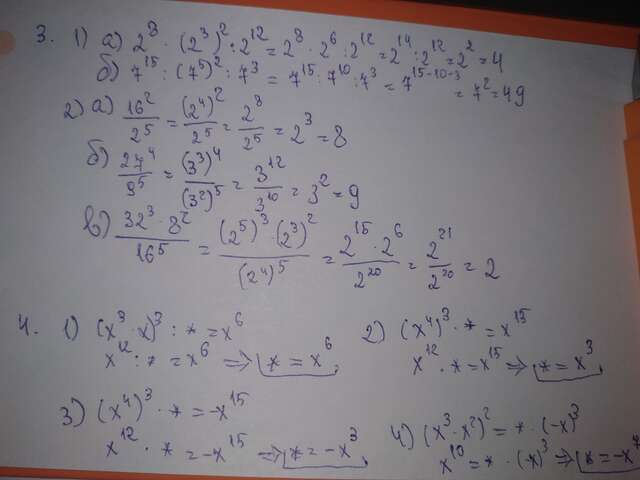 3. 1) а) 2⁸ · (2³)² : 2¹² = 2⁸ · 2⁶ : 2¹² = 2¹⁴ : 2¹² = 2² = 4
б) 7¹⁵ : (7⁵)² : 7³ = 7¹⁵ : 7¹⁰ : 7³ = 7¹⁵⁻¹⁰⁻³ = 7² = 49
2) а) 16²/2⁵ = (2⁴)²/2⁵ = 2⁸/2⁵ = 2³ = 8
б) 27⁴/9⁵ = (3³)⁴/(3²)⁵ = 3¹²/3¹⁰ = 3² = 9
в) 32³ · 8²/16⁵ = (2⁵)³ · (2³)²/(2⁴)⁵ = 2¹⁵ · 2⁶/2²⁰ = 2²¹/2²⁰ = 2
4. 1) (x³ · x)³ : * = x⁶
x¹² : * = x⁶ ⇒ * = x⁶
2) (x⁴)³ · * = x¹⁵
x¹² · * = x¹⁵ ⇒ * = x³
3) (x⁴)³ · * = -x¹⁵
x¹² · * = -x¹⁵ ⇒ * = -x³
4) (x³ · x²)² = * · (-x)³
x¹⁰ = * · (-x)³ ⇒ * = -x⁷